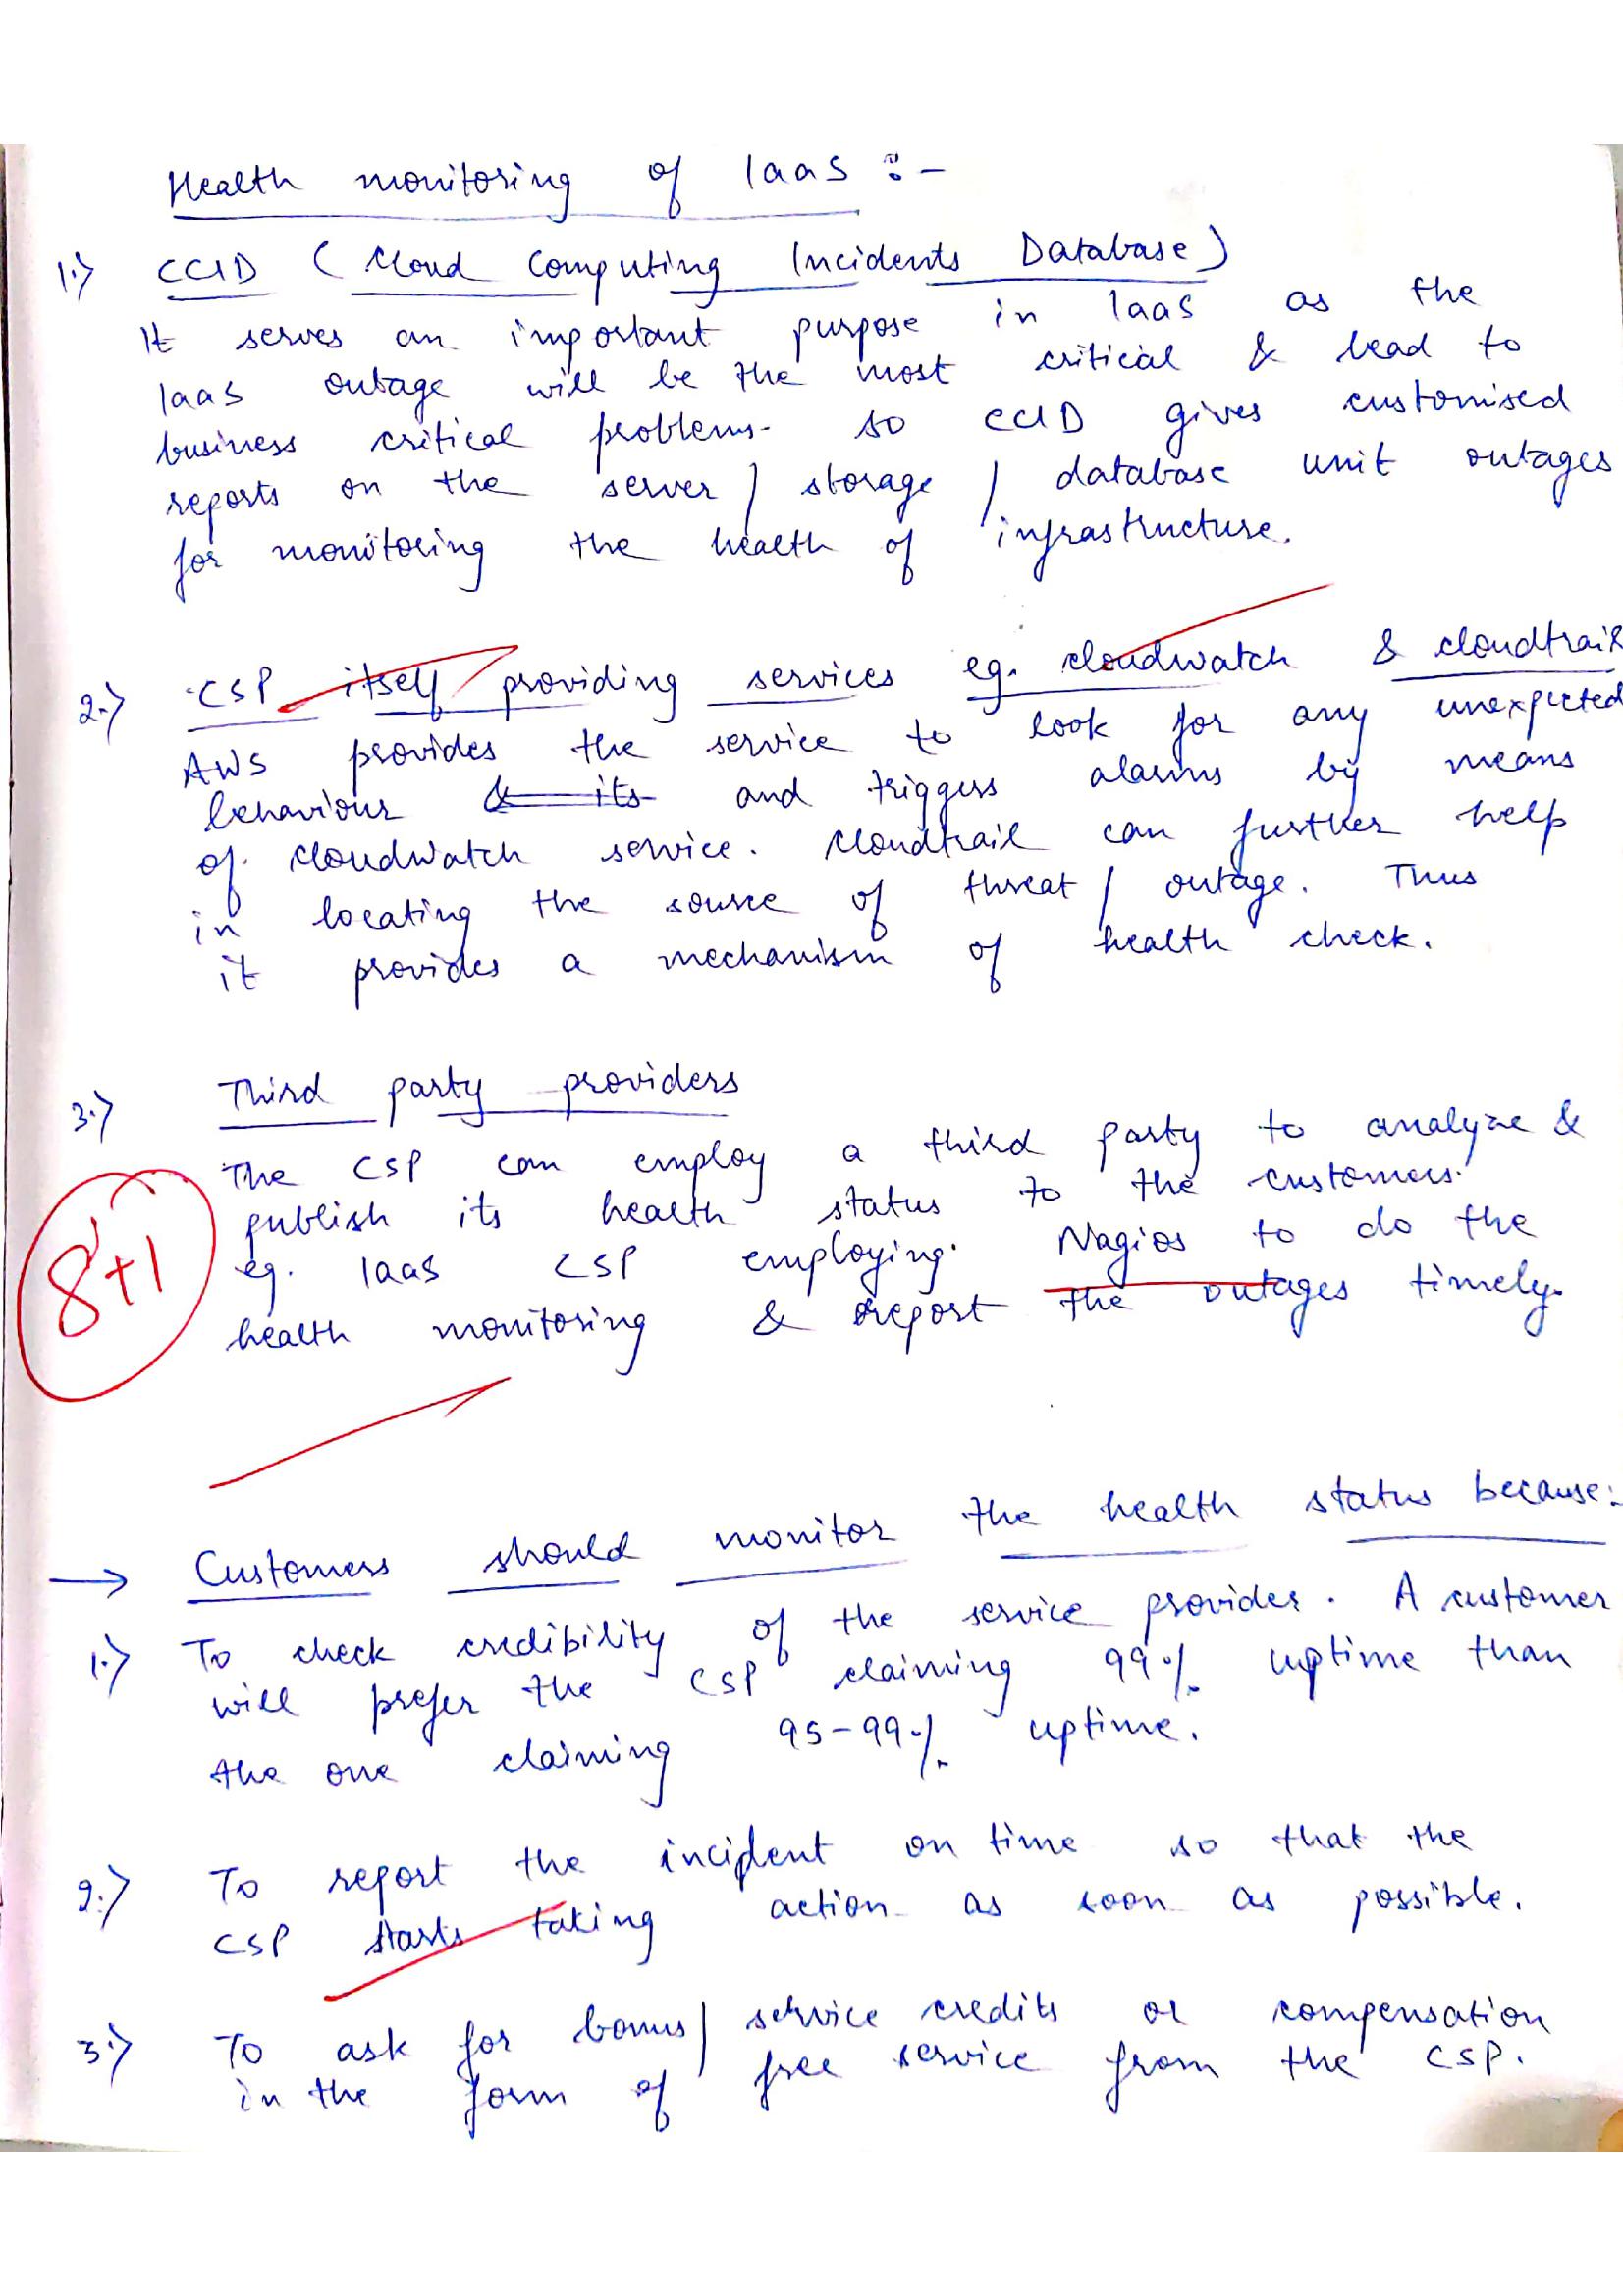 Health monitoring of Iaas :-
1.) CCID (Cloud Computing Incidents Database)
It serves an important purpose in Iaas as the
Iaas outage will be the most critical & lead to
business critical problems. so CCID gives customised
reports on the server / storage / database unit outages
for monitoring the health of infrastructure.
2.) CSP itself providing services eg. cloudwatch & cloudtrail
AWS provides the service to look for any unexpected
behaviour & its and triggers alarms by means
of cloudwatch service. Cloudtrail can further help
in locating the source of threat / outage. Thus
it provides a mechanism of health check.
3.) Third party providers
The CSP can employ a third party to analyze &
publish its health status to the customers.
eg. Iaas CSP employing Nagios to do the
health monitoring & report the outages timely.
8+1
→ Customers should monitor the health status because:
1.) To check credibility of the service provider. A customer
will prefer the CSP claiming 99% uptime than
the one claiming 95-99% uptime.
2.) To report the incident on time so that the
CSP starts taking action as soon as possible.
3.) To ask for bonus / service credits or compensation
in the form of free service from the CSP.